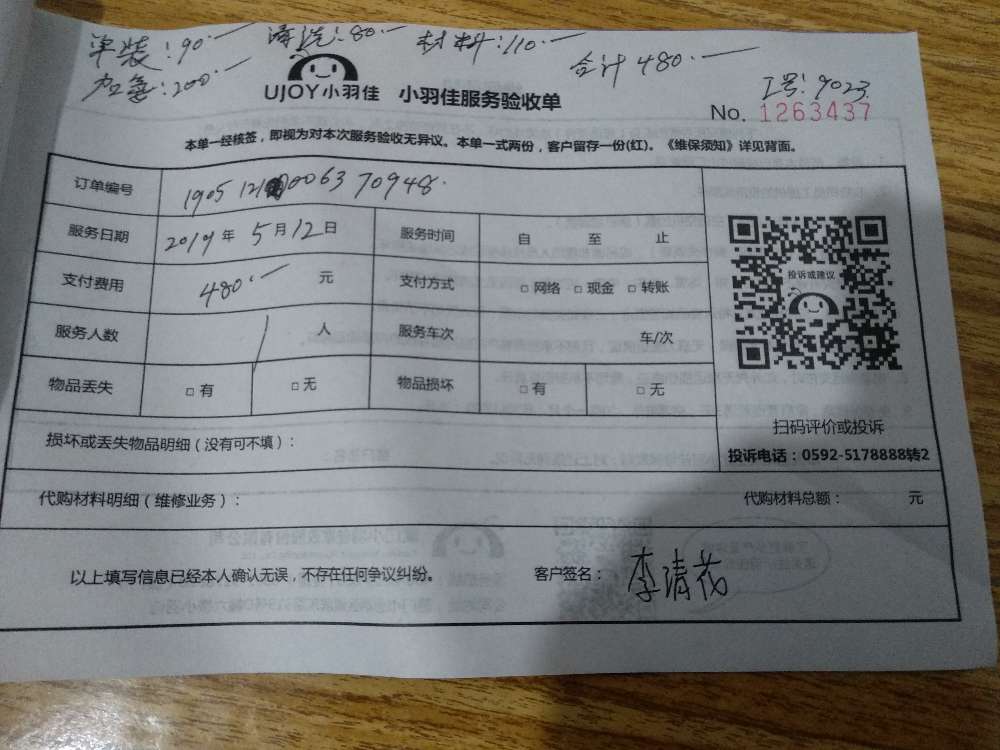 单装:90.一 清洗:80.一 材料:110.一 合计480.一
加氟:200.一 工号:9023
UJOY小羽佳 小羽佳服务验收单
No. 1263437
本单一经核签，即视为对本次服务验收无异议。本单一式两份，客户留存一份(红)。《维保须知》详见背面。
订单编号 1905 12 0063 70948
服务日期 2019年 5月12日 服务时间 自 至 止
支付费用 480.一 元 支付方式 □网络 □现金 □转账
服务人数 1 人 服务车次 车/次
物品丢失 □有 □无 物品损坏 □有 □无
投诉或建议
扫码评价或投诉
投诉电话：0592-5178888转2
损坏或丢失物品明细（没有可不填）：
代购材料明细（维修业务）： 代购材料总额： 元
以上填写信息已经本人确认无误，不存在任何争议纠纷。 客户签名： 李清花